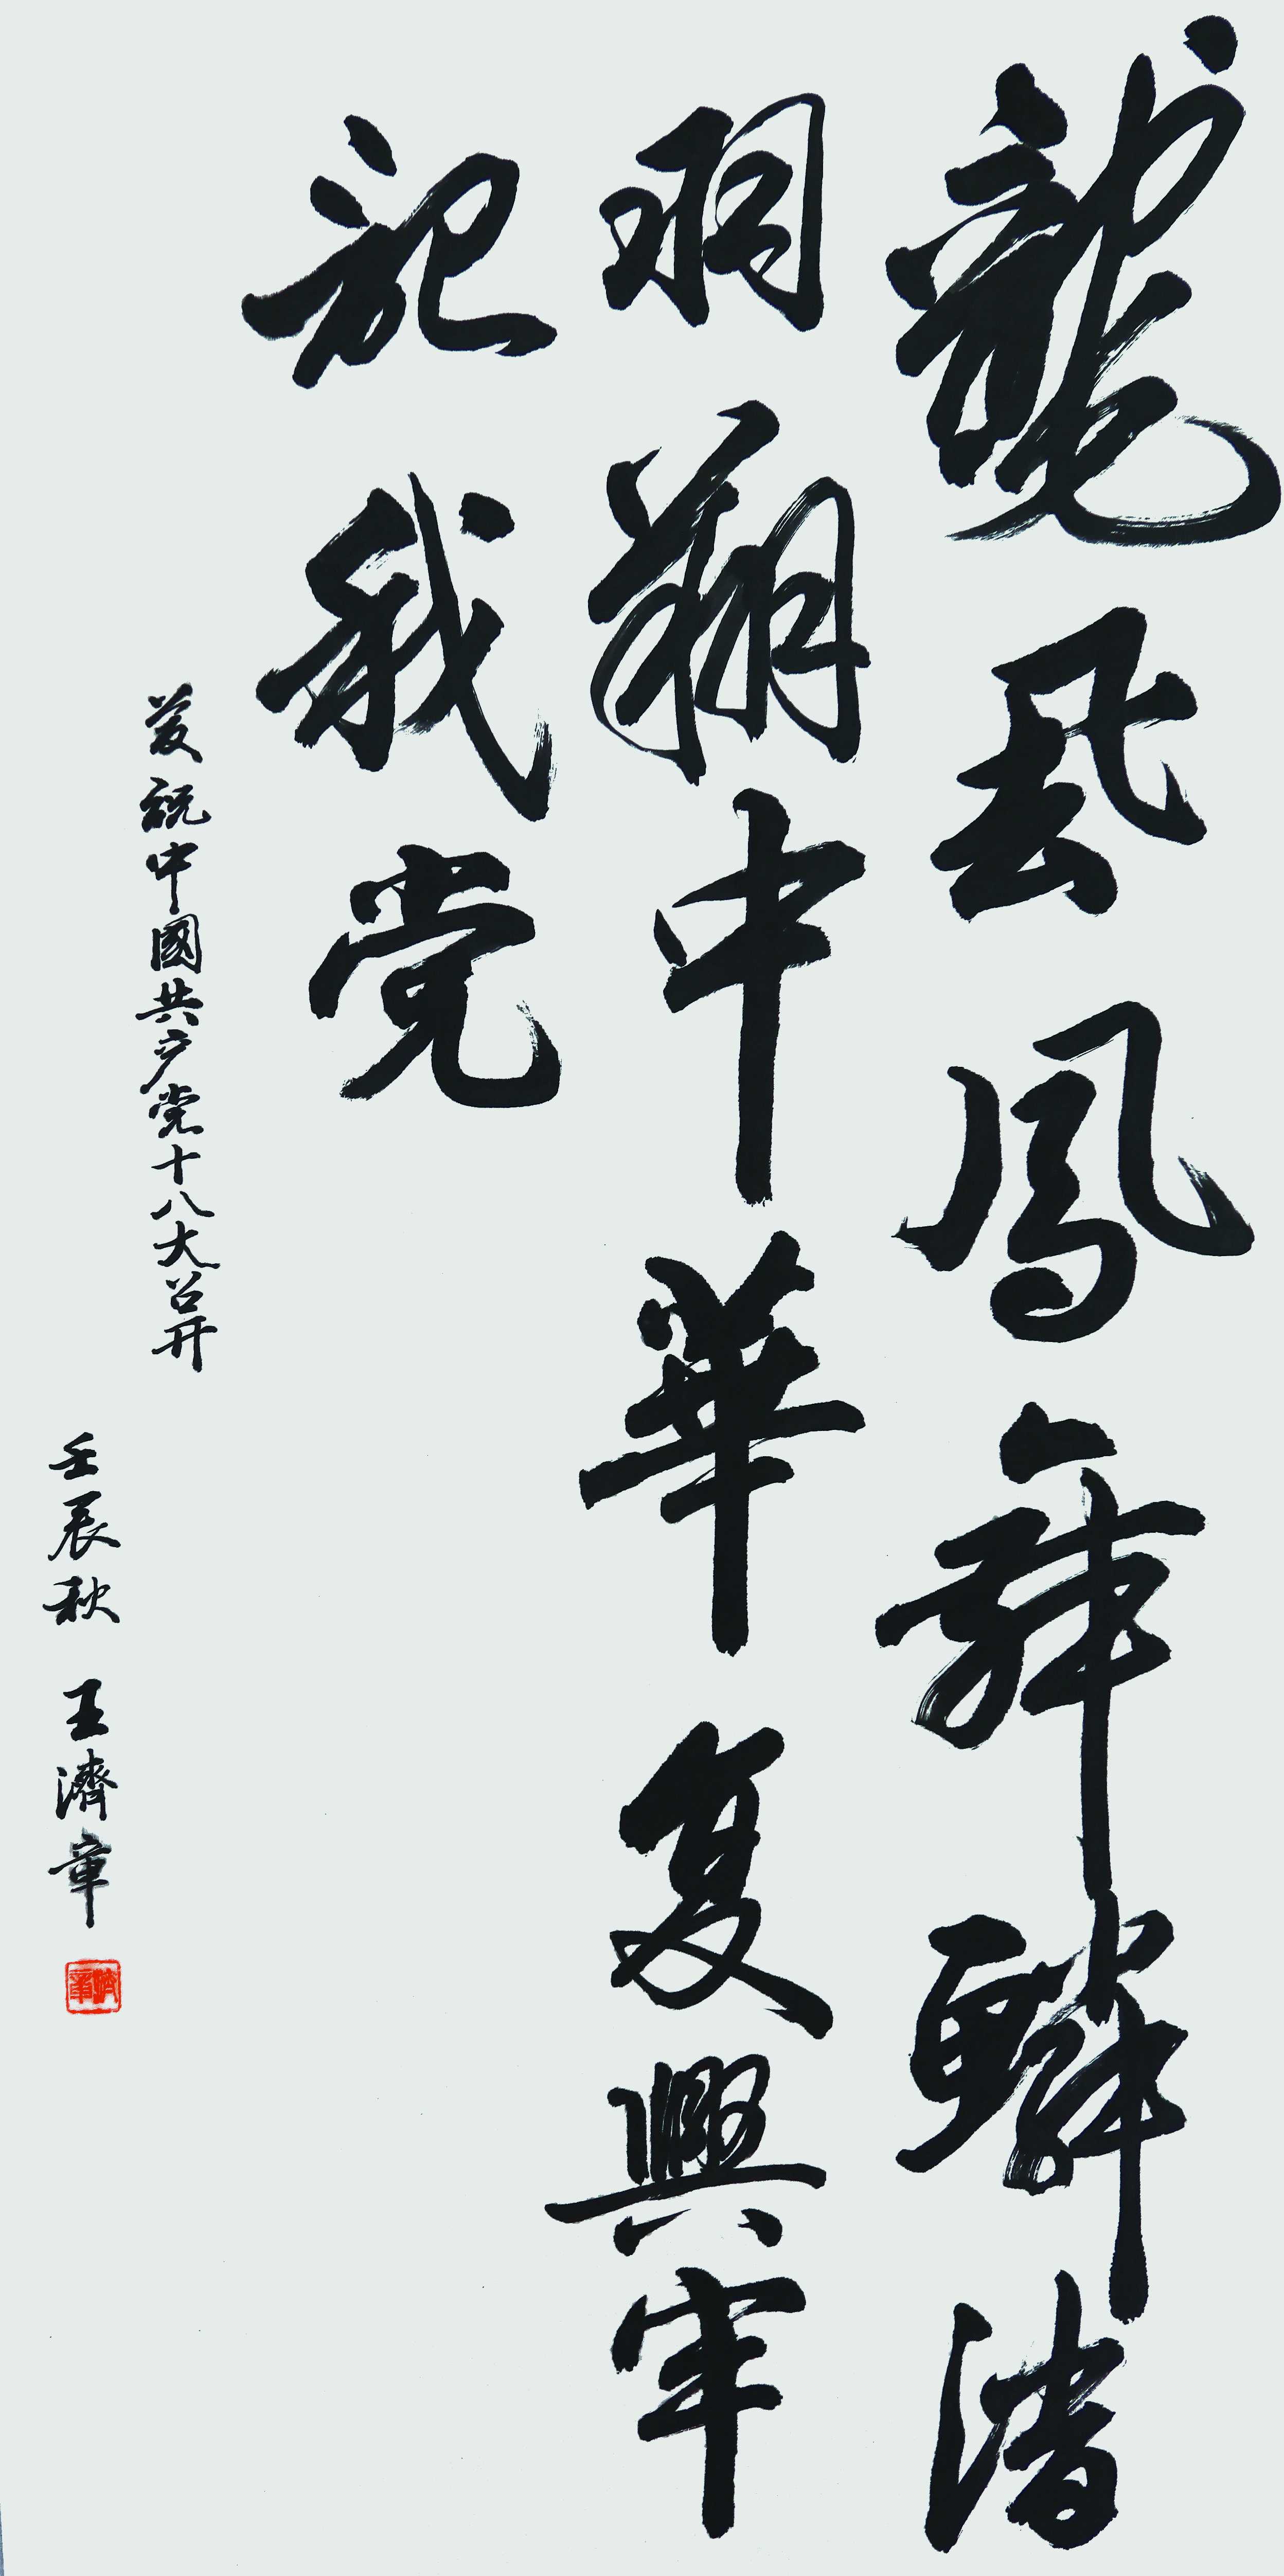 龍飛鳳舞鱗潜
羽翔中華复興牢
記我党
慶祝中國共产党十八大召开
壬辰秋 王濟章